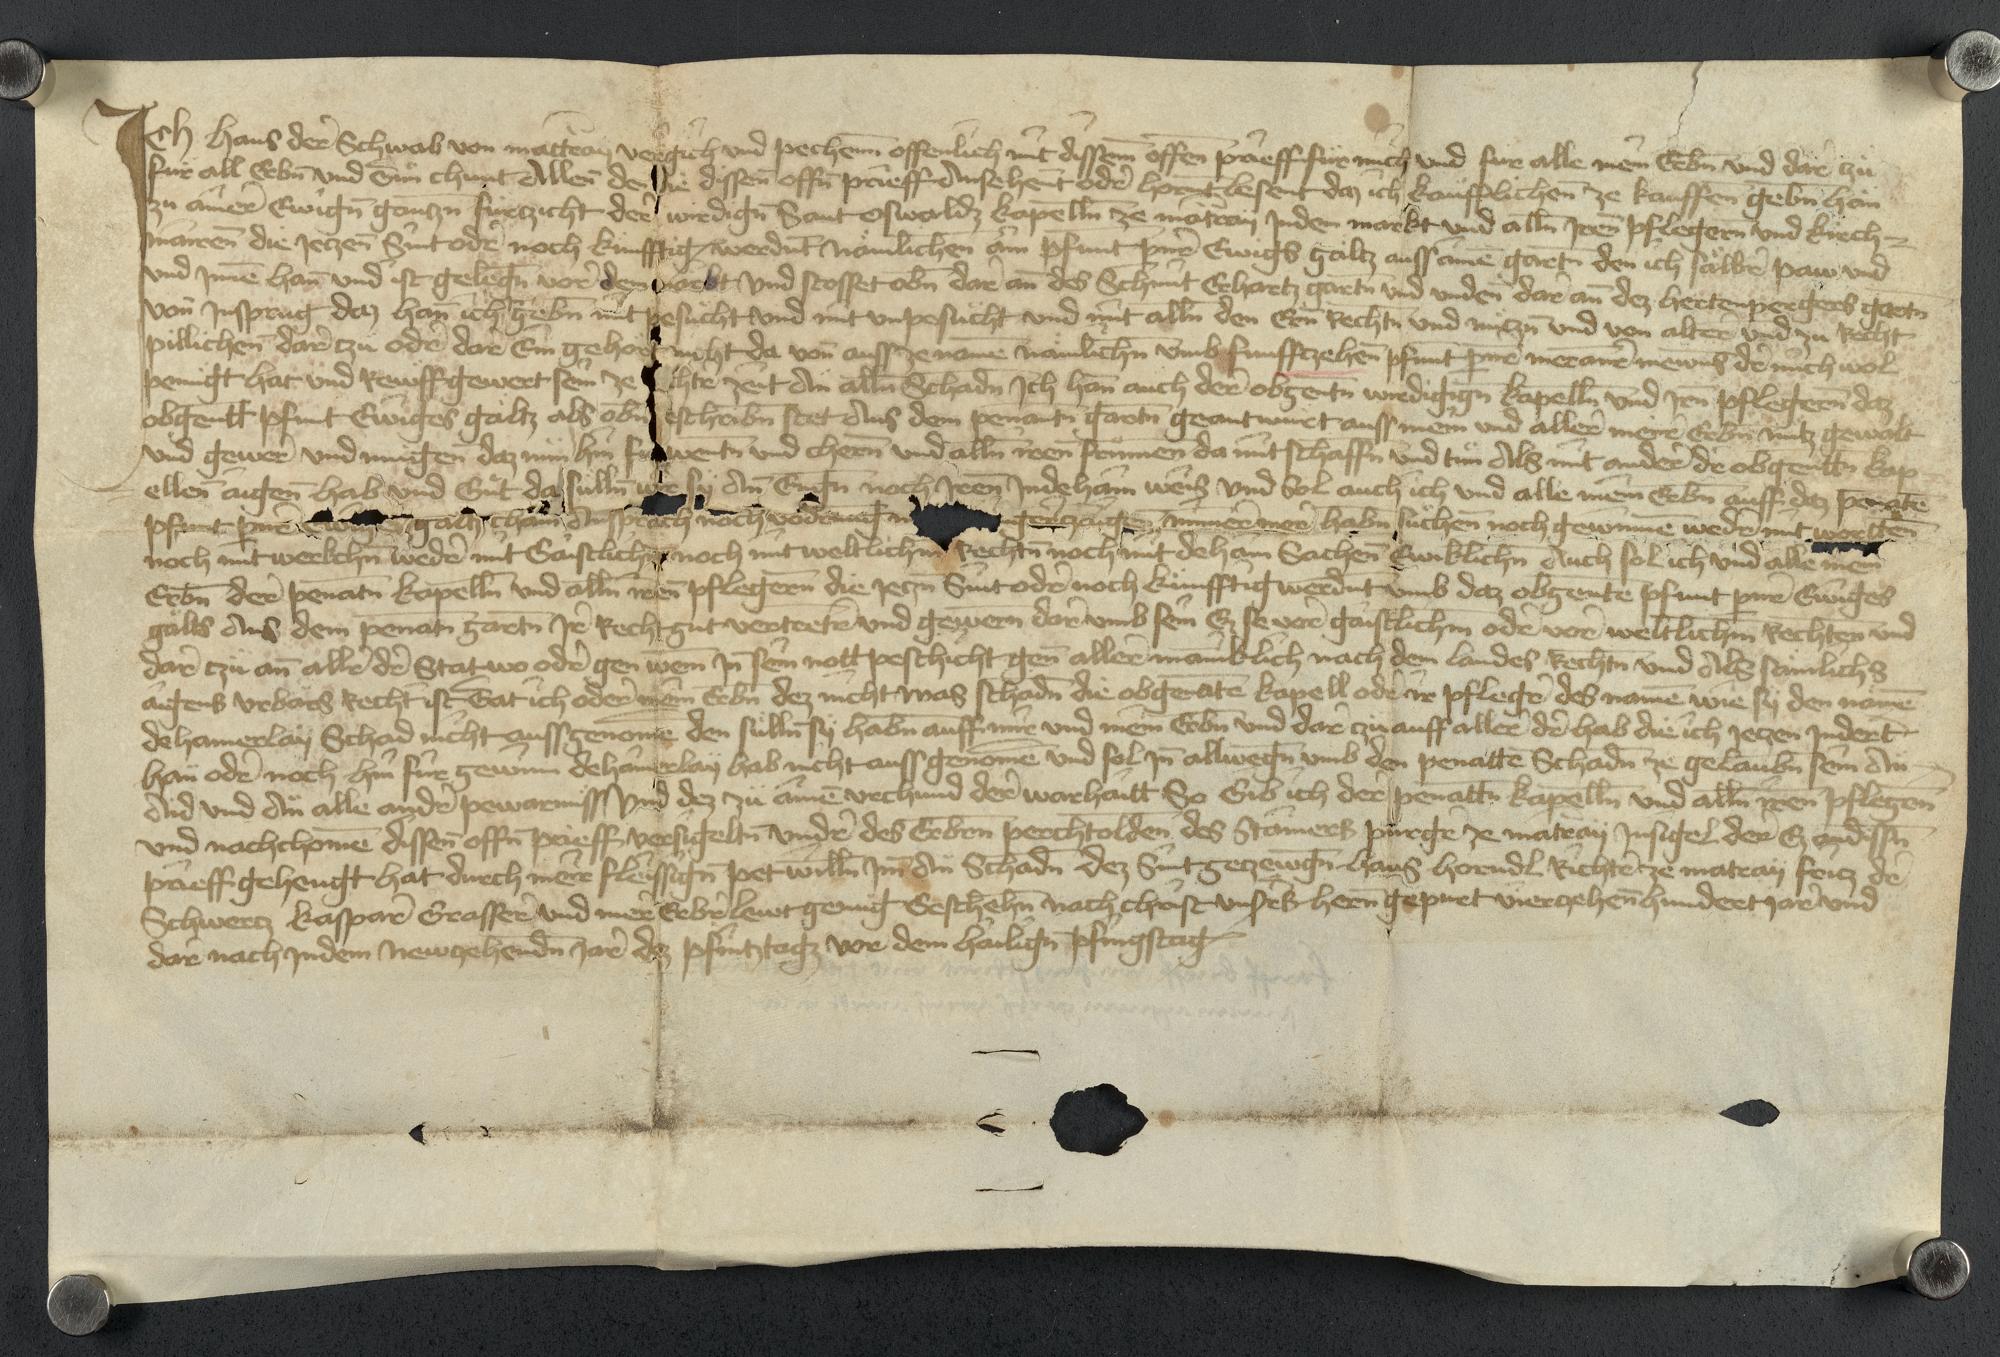 Ich Hans der Schwab von matray vergich und pechenn offenlich mit dissem offen prieff fur mich und fur alle mein Erbn und dar tzu
fur all Erbn und Tun chunt Allen den die dissen offn prieff Ansehent oder horent lesent daz ich kaufflichen ze kauffen gebn han
zu ainer Ewign gantzn furtzicht der wirdign Sant oswaldz kapelln ze matray Indem markt und alln Iren pflegern und kirch
mairen die Jetzen Sint oder noch kunfftig werdnt Namlichen ain pfunt pner Ewigs galtz auss aime gartn den ich salber paw und
und Inne han und ist gelegn vor dem markt und stosset obn dar an des Schmit Erhartz gartn und unden dar an dez hertenpergers gartn
von Insprug daz han ich gebn mit pesucht und mit unpesucht und mit alln den Ern Rechtn und nutzn und von alter und zu Recht
pillichen dar tzu oder dar Ein gehort nicht da von auss ze name namlichn umb funfftzehen pfunt pner meraner mewns der mich wol
penugt hat und Rewff gewert sein ze rechter zeit An alln Schadn Ich han auch der obgentn wirdigign kapelln und Irn pflegern daz
obgentt pfunt Ewiges galtz als obn geschribn stet Aus dem penantn gartn geantwurt auss mein und aller meiner Erbn nutz gewalt
und gewer und mugen daz nun hin fur wentn und chern und alln iren frumen da mit schaffn und tun Als mit ander der obgentn kap
ellen aigen hab und Gut da sulln wir sy An Engn noch Iren Indehain weis und Sol auch ich und alle mein Erbn auff daz penante
pfunt pner Ewiges galtz chain Ansprach noch vodrung nimer mer habn suchen noch gewinne weder mit wortten
noch mit werkchn weder mit Gaistlichn noch mit weltlichn Rechtn noch mit dehain Sachen Ewiklichn Auch sol ich und alle mein
Erbn der penatn kapelln und alln iren pflegern die Jeczn Sint oder noch kunfftig werdnt umb daz obgente pfunt pner Ewiges
galts Aus dem penatn gartn Ir Recht gut vertreter und gewern dar umb sein Ez se vor gaistlichm oder vor weltlichm Rechten und
dar tzu an aller der Stat wo oder gen wem In sein nott peschicht gen aller mainklich nach dem landes Rechtn und Als samlichs
aigens urbars Recht ist Tat ich oder mein Erbn dez nicht was schadn die obgenate kapell oder ir pfleger des name wie sy den name
dehainerlay Schad nicht aussgenome den sulln sy habn auff mir und mein Erbn und dar tzu auff aller der hab die ich jetzen Indert
han oder noch hin fur gewinn dehainerlay hab nicht auss genome und sol In allwegn umb den penatte Schadn ze gelaubn sein An
Aid und An alle ander pewarniss Und dez zu aime urchund der warhaitt So Gib ich der penattn kapelln und alln iren pflegen
und nachchome dissen offn prieff versigeltn under des Erbern perchtolden des Stamers purger ze matray Insigel der Ez andissn
prieff gehengt hat durch meiner fleissign pet willn Im An Schadn dez Sint getzewgn Hans horndl Richter ze matray fritz der
Schwertz kaspar Grasser und mer Erber lewt genug Geschehn nach christ unsers hern gepurt vierzehenhundert Jar und
dar nach Indem Newzehendn Jar dez pfintztagz vor dem hailign pfingstag